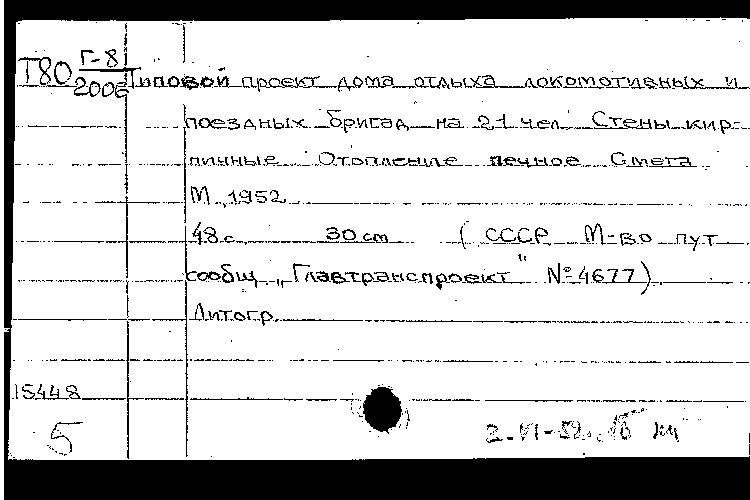 Т80 Г-8/2006 Типовой проект дома отдыха локомотивных и
поездных бригад на 21 чел. Стены кир-
пичные Отопление печное Смета
М., 1952
48с. 30 см (СССР М-во пут
сообщ „Главтранспроект" №4677)
Литогр.
15448
5
2-VI-52г.